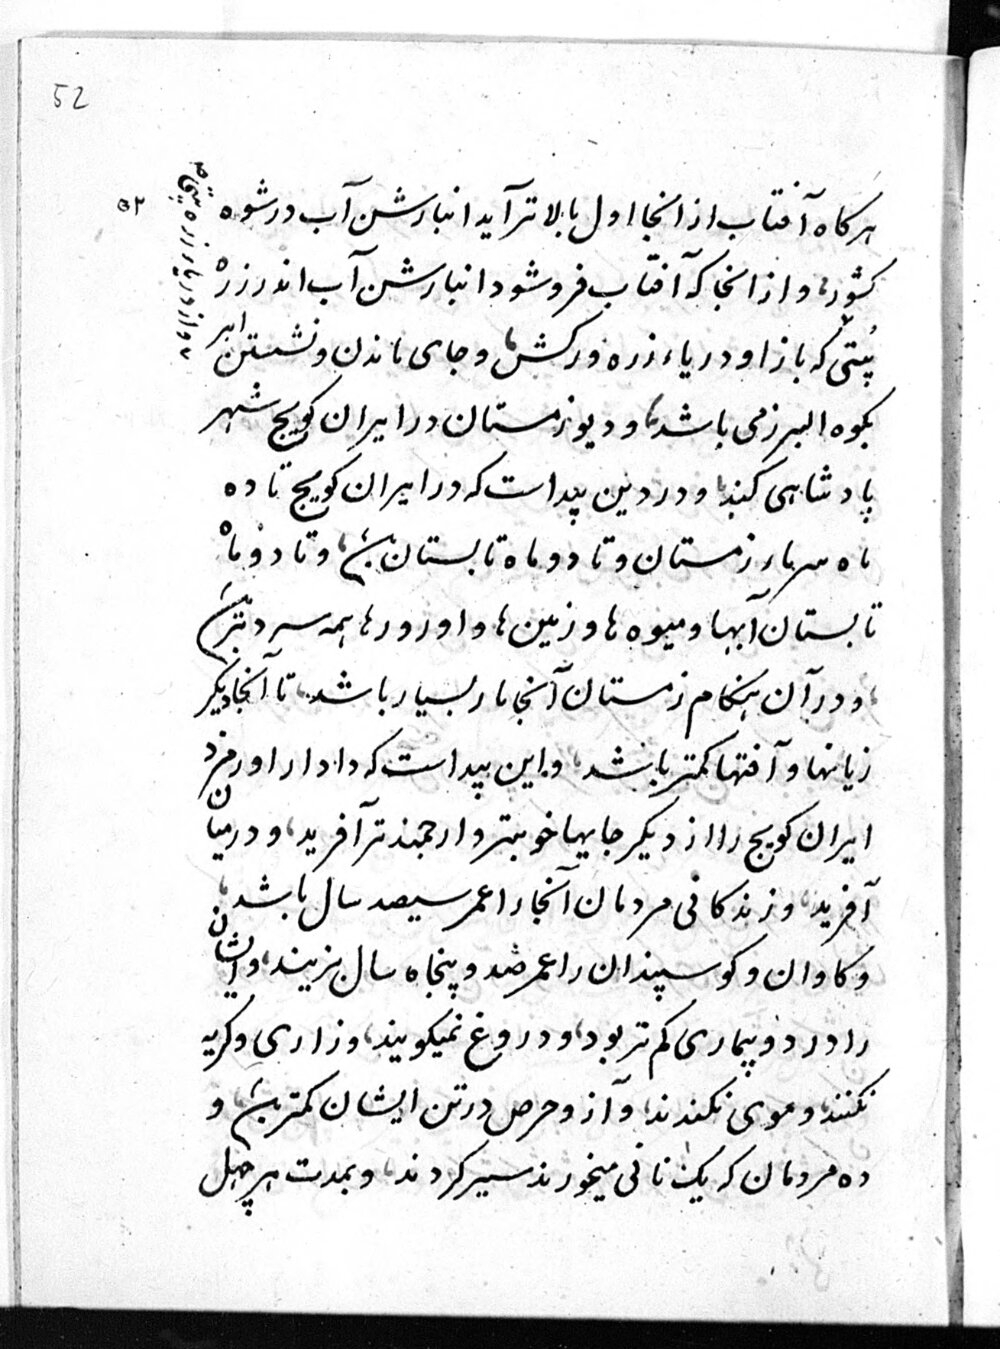 52
۵۲
هرگاه آفتاب از انجا اول بالا تر آید انبارشن آب درشوه
کشور، و از انجا که آفتاب فروشود انبارشن آب اندر زره
پتی که باز او دریاء زره ورکش، و جای ماندن و نشستن ابر
بکوه البرز می باشد، و دیو زمستان در ایران کویج شهر
پادشاهی کند، و در دین پیداست که در ایران کویج تا ده
ماه سرمار زمستان و تا دو ماه تابستان بن، و تا دو ماه
تابستان آبها و میوه ها و زمین ها و اورورها همه سردتر
و در آن هنکام زمستان آنجا مار بسیار باشد، تا آنجا دیکر
زیانها و آفتها کمتر باشد، و این پیداست که دادار اورمزد
ایران کویج را از دیکر جایها خوبتر و ارجمند تر آفرید، و درمیان
آفرید، و زندکانی مردمان آنجا را عمر سیصد سال باشد،
و کاوان و کوسپندان را عمر صد و پنجاه سال بزیند، و ایشان
را درد و بیماری کم تر بود، و دروغ نمیکویند، و زاری و کریه
نکنند، و موی نکندند، و آز و حرص در تن ایشان کمتر بن، و
ده مردمان که یک نانی میخورند سیر کردند، و بمدت هر چهل